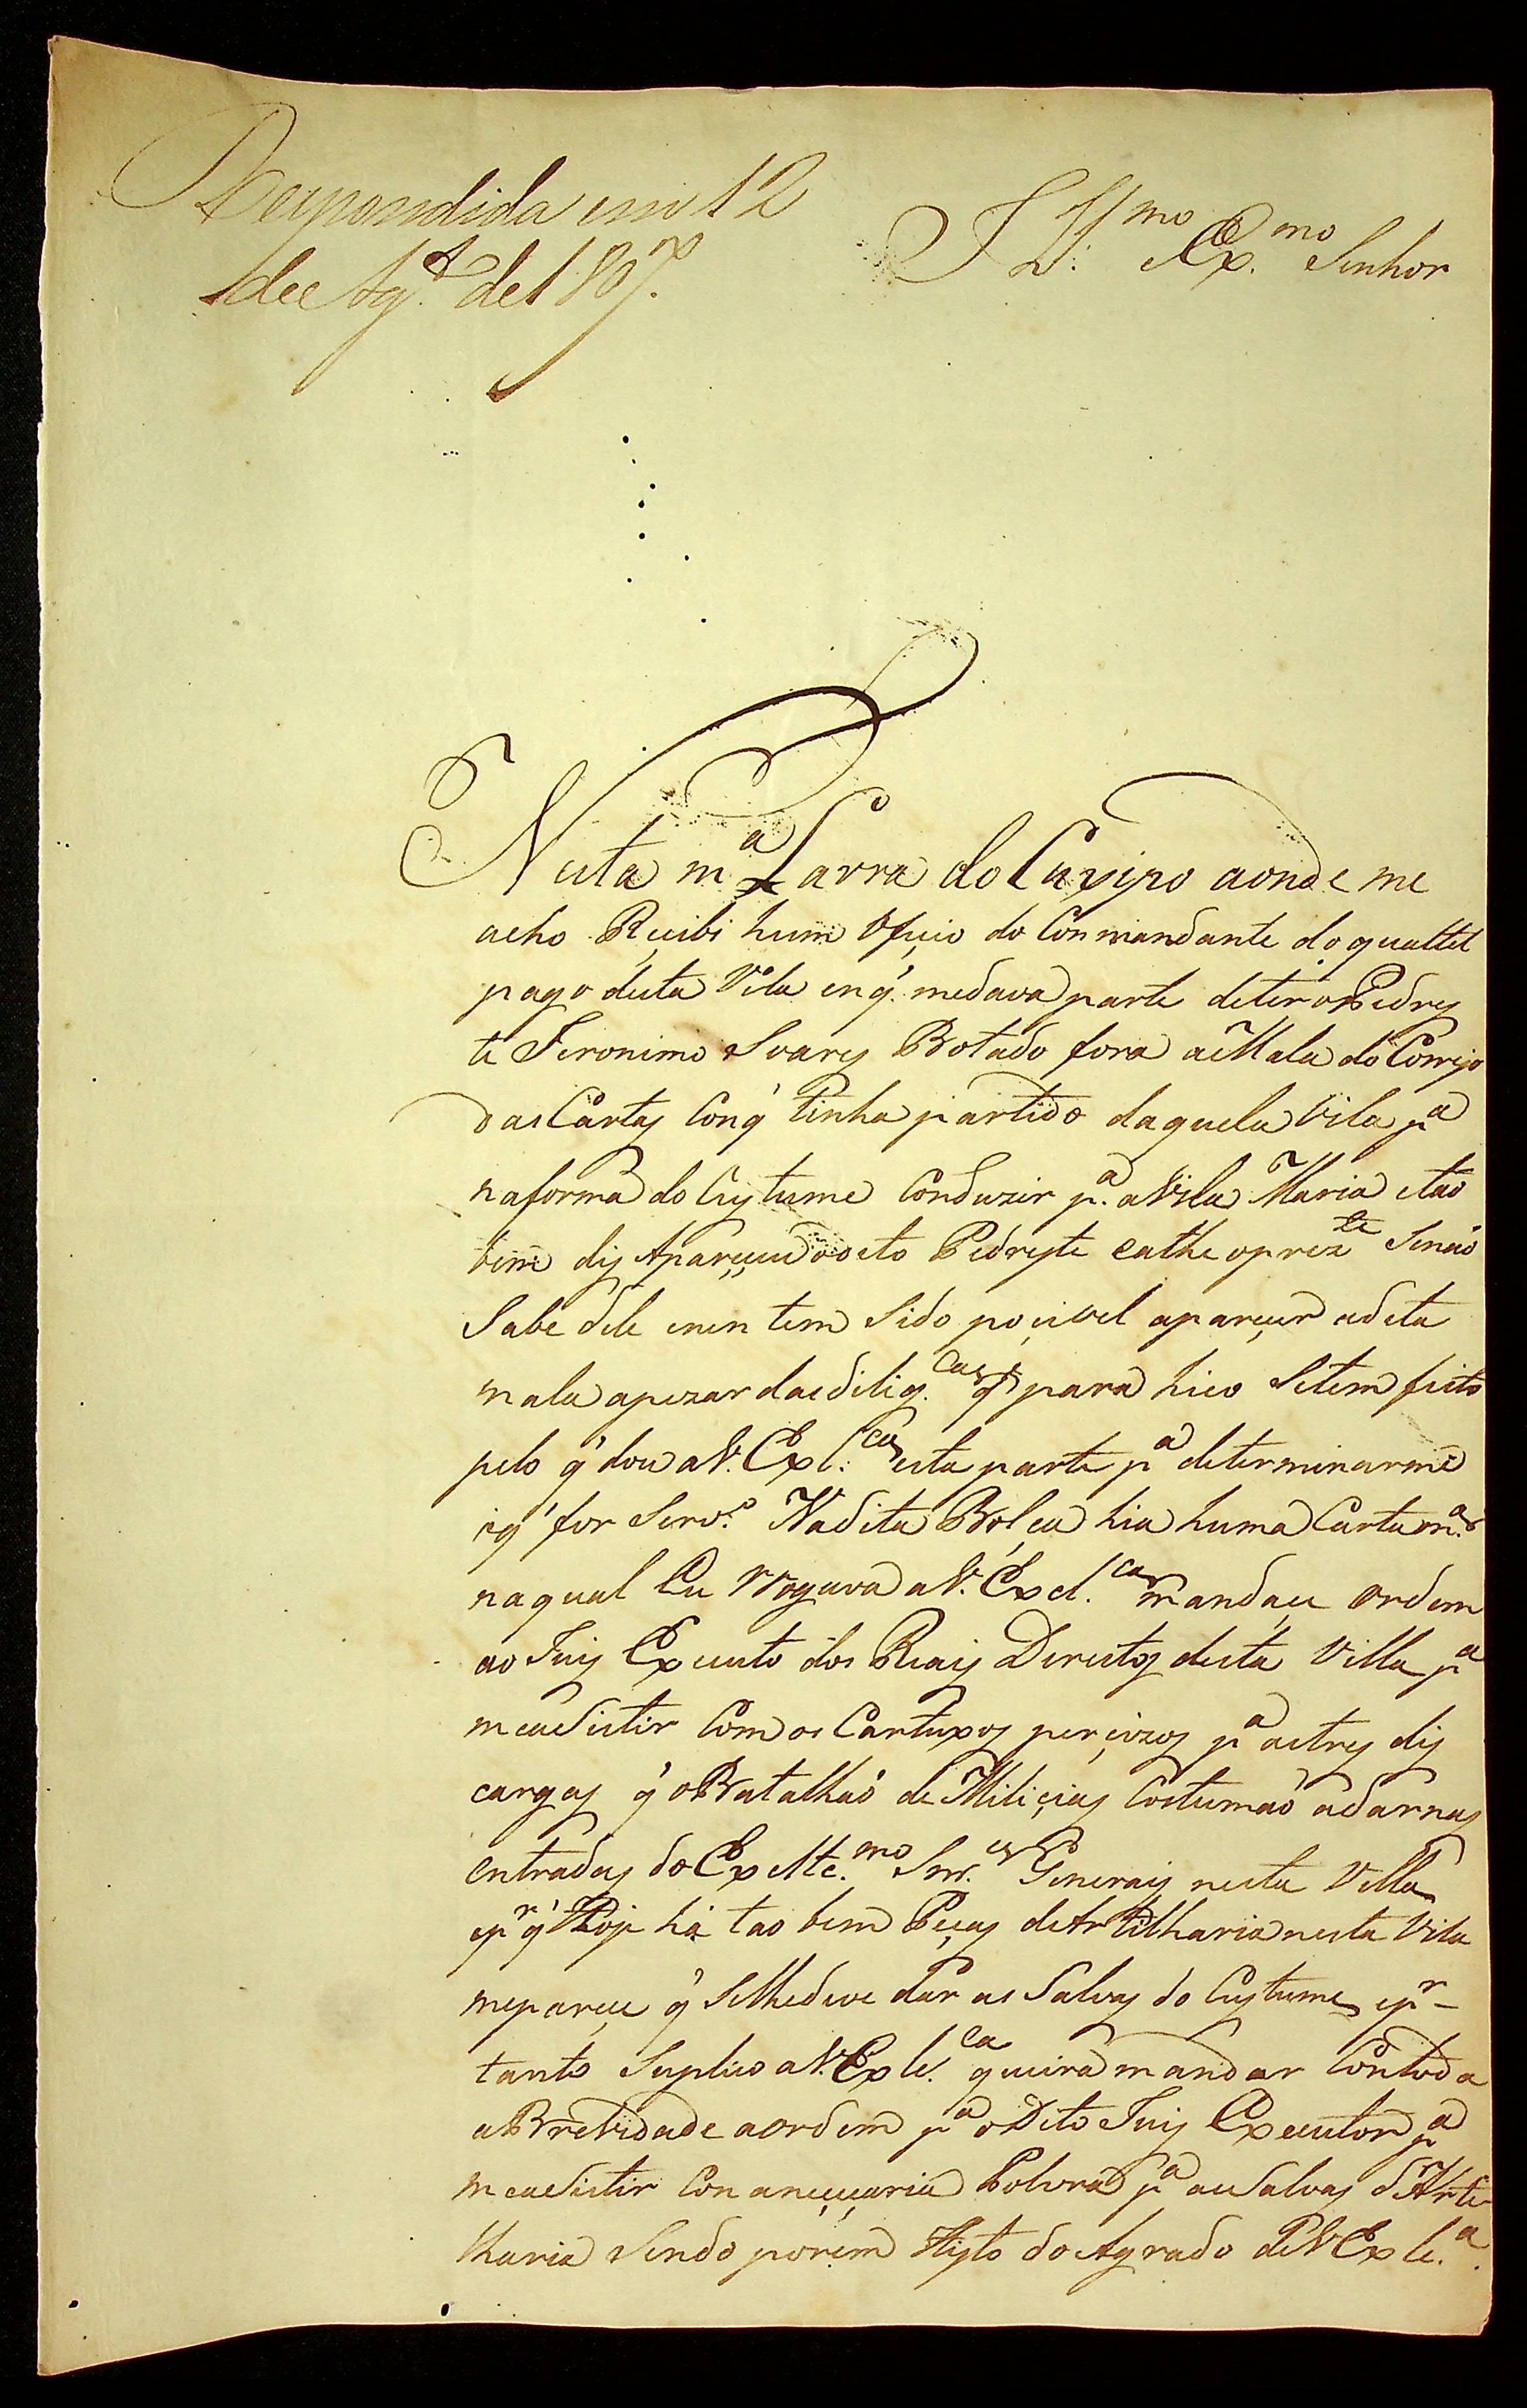 Respondida em 12
de Ag.to de 1807.
Ill.mo e Ex.mo Senhor
Nesta m.a Lavra do Cuxipo aonde me
acho Reçibi hum Ofiçio do Commandante do quartel
pago desta Vila en q' medava parte deter o Pedres
te Jeronimo Soares Botado fora a Mala do Correjo
das Cartas Con q' tinha partido daquela Vila p.a
naforma do Custume Conduzir p.a a Vila Maria etao
bem dis Apareçeu odto Pedreste eathe oprez.te Senaõ
Sabe dele enen tem Sido poçivel apareçer adita
mala apezar dasdilig.cas q' para hico Setem feito
pelo q' dou a V. Exl.ca esta parte p.a determinarme
oq' for Serv.o Nadita Bolça hia huma Carta m.a
naqual Eu Rogava a V. Excl.ca mandaçe ordem
ao Juis Executo dos Reais Dereitos desta Villa p.a
measistir Com os Cartuxos perçizos p.a astres dis
cargas q' o Batalhaõ de Miliçias Costumaõ adarnas
entradas do Exelle.mo Snr.es Generais nesta Villa
ep.r q' Hoje há tao bem Peças de Artilharia nesta Vila
mepareçe q' Selhedeve dar as Salvas do Custume ep.r
tanto Suplico a V. Exle.ca queira mandar Contoda
a Brevidade aordem p.a o Dito Juis Executor p.a
measistir Con aneçeçaria Polvora p.a as Salvas d'Arti
lharia Sendo porem Histo do Agrado de V Exle.a